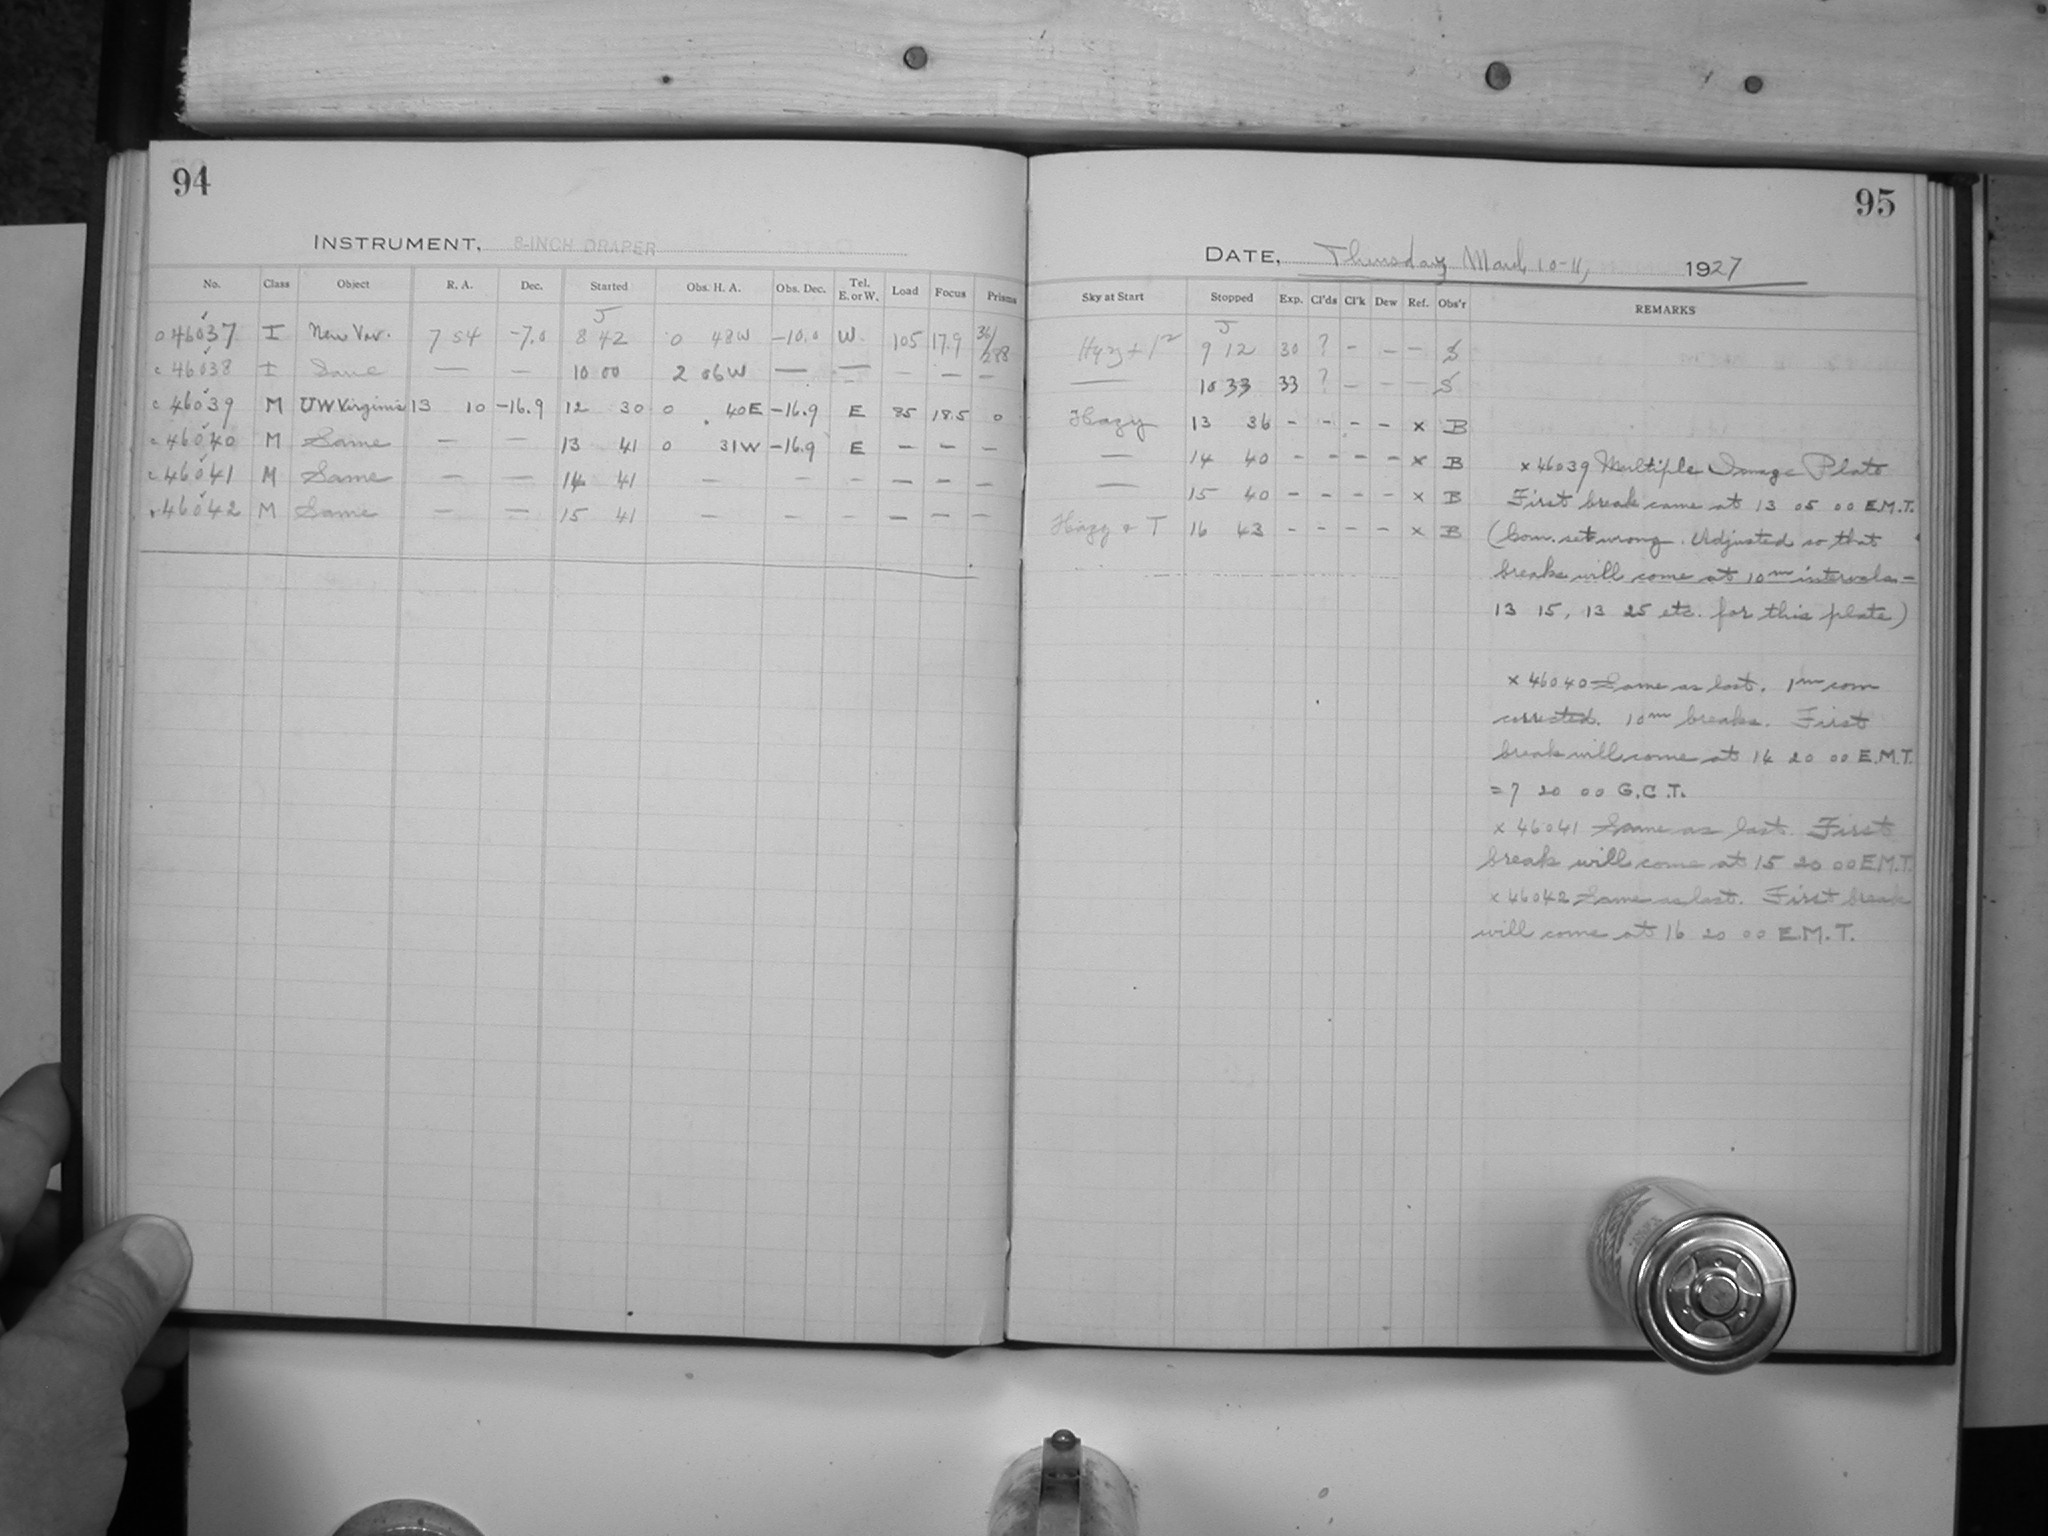 94
INSTRUMENT, 8-INCH DRAPER
No. Class Object R. A. Dec. Started Obs. H. A. Obs. Dec. Tel. E. or W. Load Focus Prisms
J
46037 I New Var. 7 54 -7.0 8 42 0 48W -10.0 W. 105 17.9 36/288
c 46038 I Same — — 10 00 2 06W — — — — —
c 46039 M UW Virginis 13 10 -16.9 12 30 0 40E -16.9 E 85 18.5 0
c 46040 M Same — — 13 41 0 31W -16.9 E — — —
c 46041 M Same — — 14 41 — — — — — —
46042 M Same — — 15 41 — — — — — —
95
DATE, Thursday March 10-11, 1927
Sky at Start Stopped Exp. Cl'ds Cl'k Dew Ref. Obs'r REMARKS
J
9 12 30 ? – – – S
— 10 33 33 ? – – – S
Hazy 13 36 – – – – x B
— 14 40 – – – – x B
— 15 40 – – – – x B
Hazy & T 16 43 – – – – x B
x 46039 Multiple Image Plate
First break came at 13 05 00 E.M.T.
(Com. set wrong. Adjusted so that
breaks will come at 10m intervals –
13 15, 13 25 etc. for this plate)
x 46040 Same as last. 1m com
corrected. 10m breaks. First
break will come at 14 20 00 E.M.T.
= 7 20 00 G.C.T.
x 46041 Same as last. First
break will come at 15 20 00 E.M.T.
x 46042 Same as last. First break
will come at 16 20 00 E.M.T.